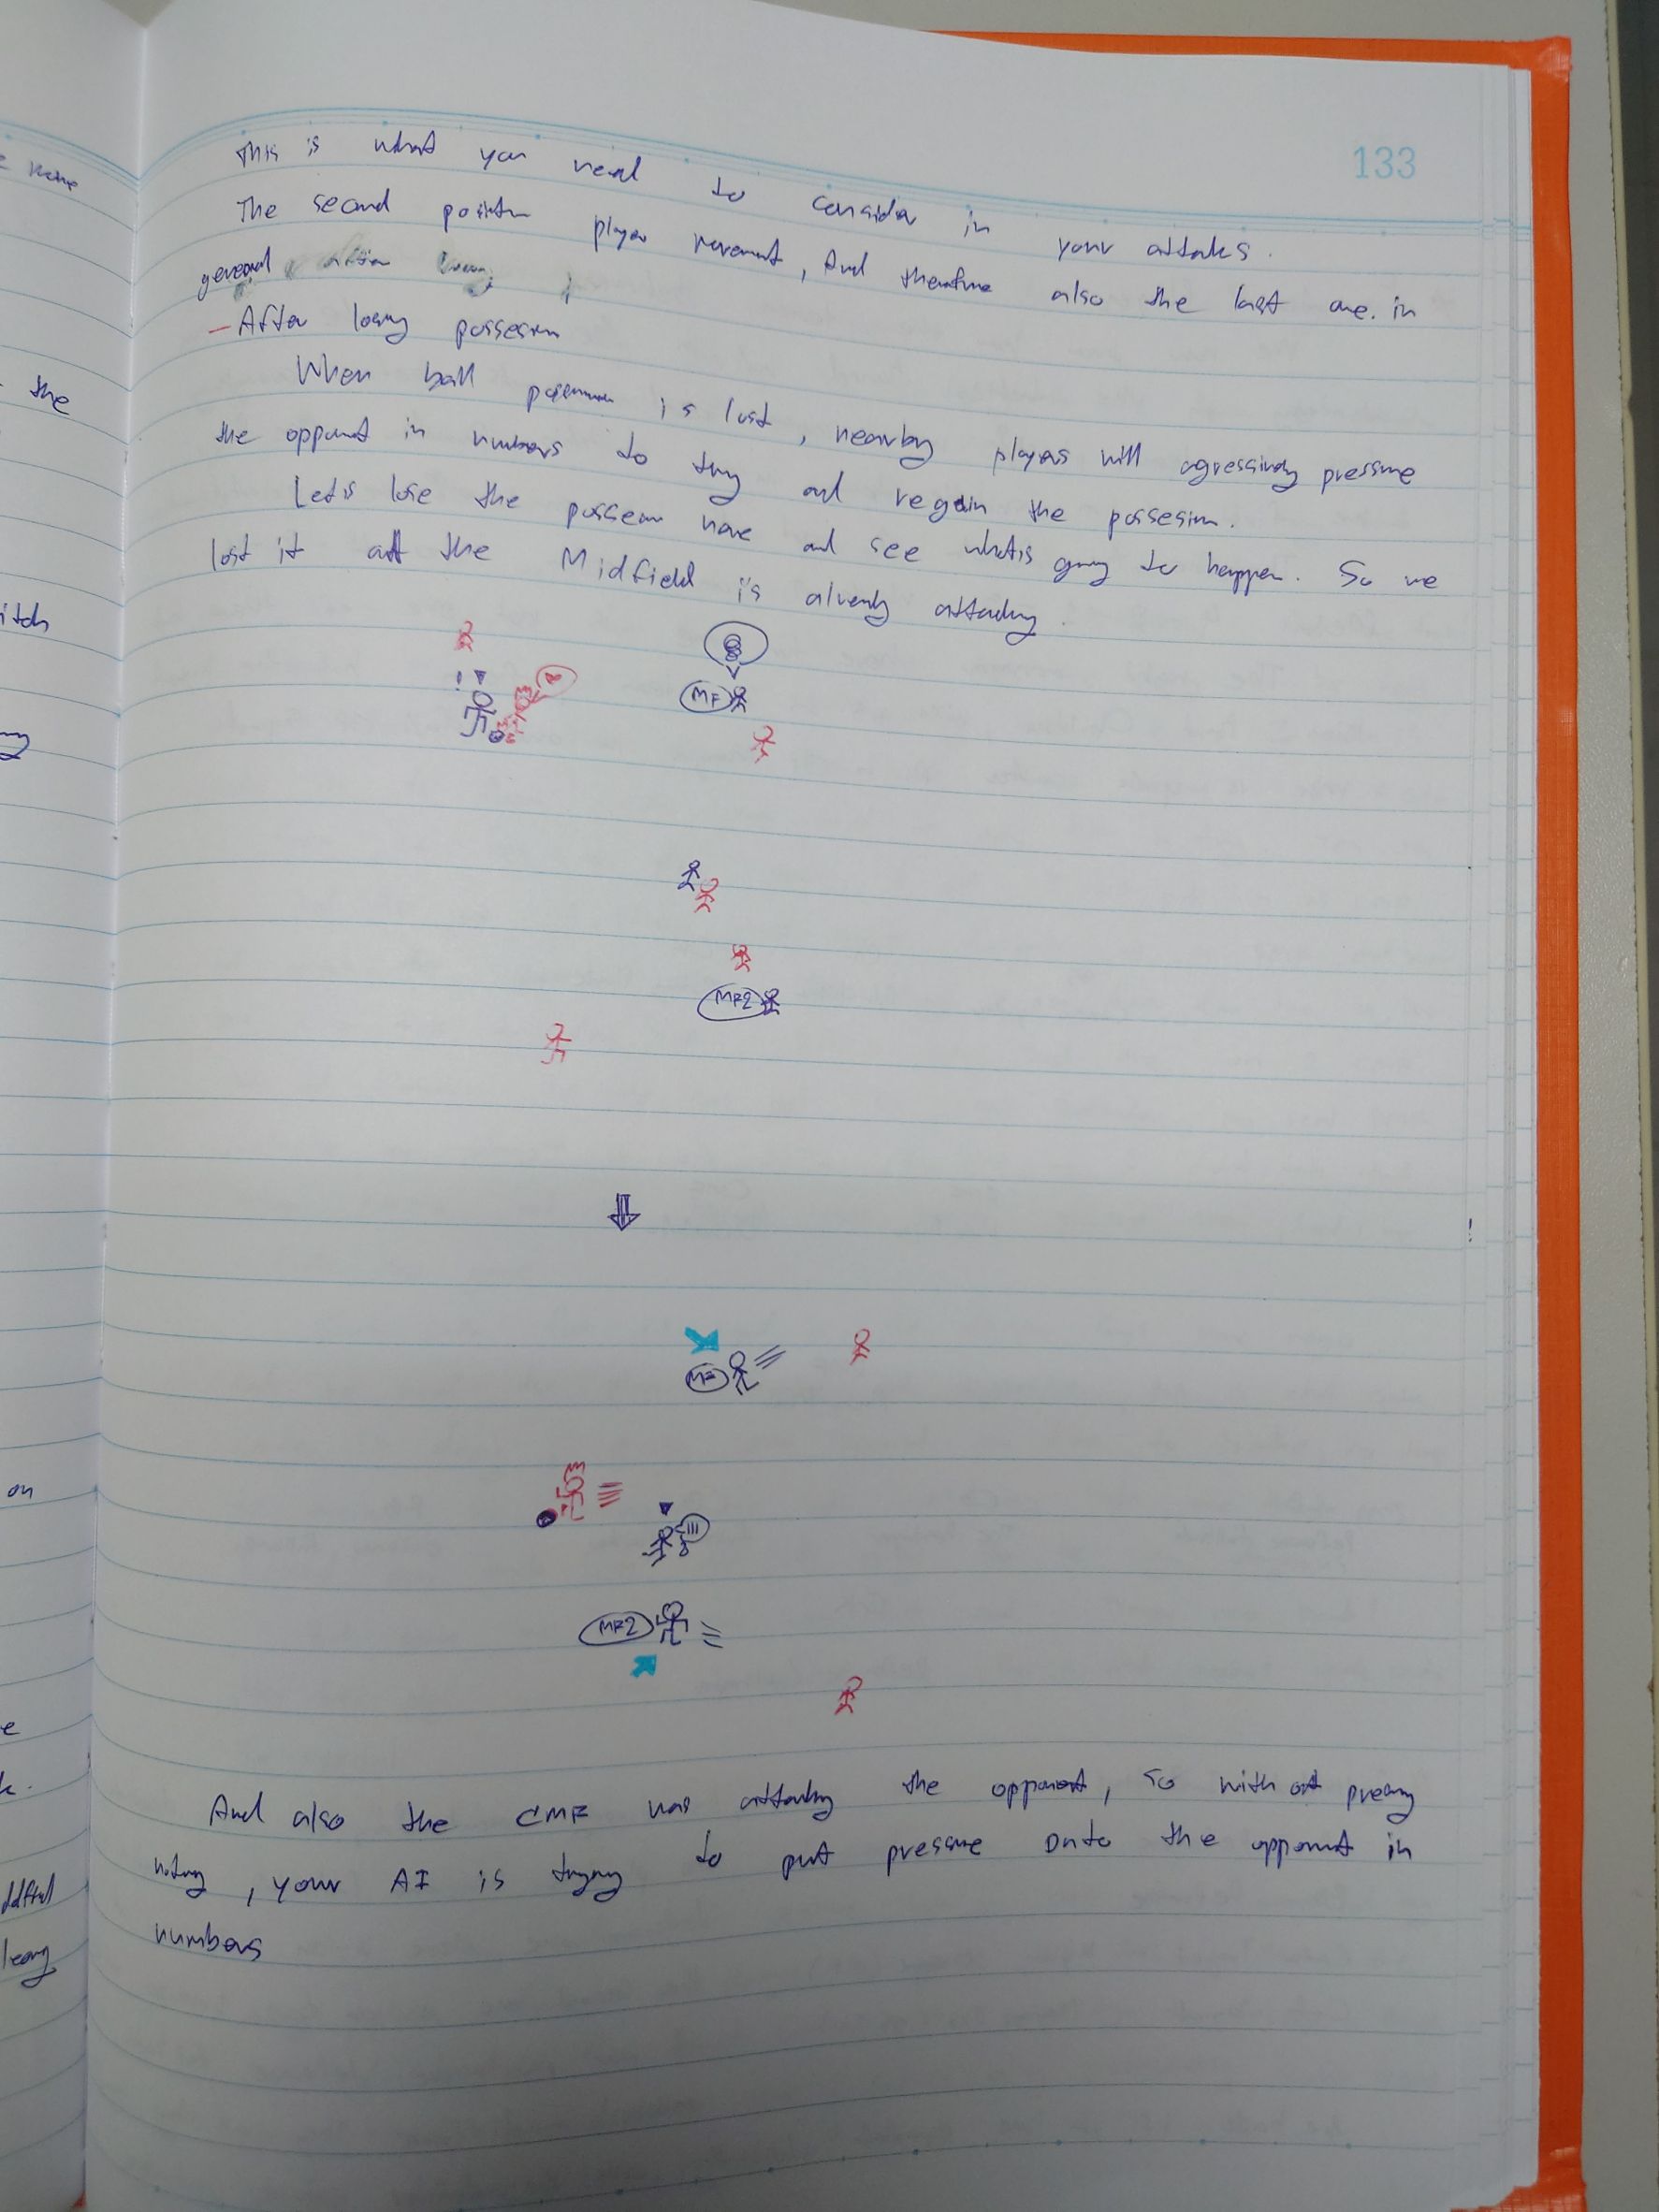 133
This is what you need to consider in your attaks.
The second positin player movement, And therefore also the last one. in
general
- After losing possesion
When ball is lost, nearby players will agressivly pressure
the opponent in numbers to try and regain the possesion.
Let's lose the possesion here and see what's going to happen. So we
lost it at the Midfield is already attacking.
!
MF
MF2
MF
MF2
And also the CMF was attacking the opponent, so without pressing
noting, your AI is trying to put pressure onto the opponent in
numbers
the
itch
on
e
k.